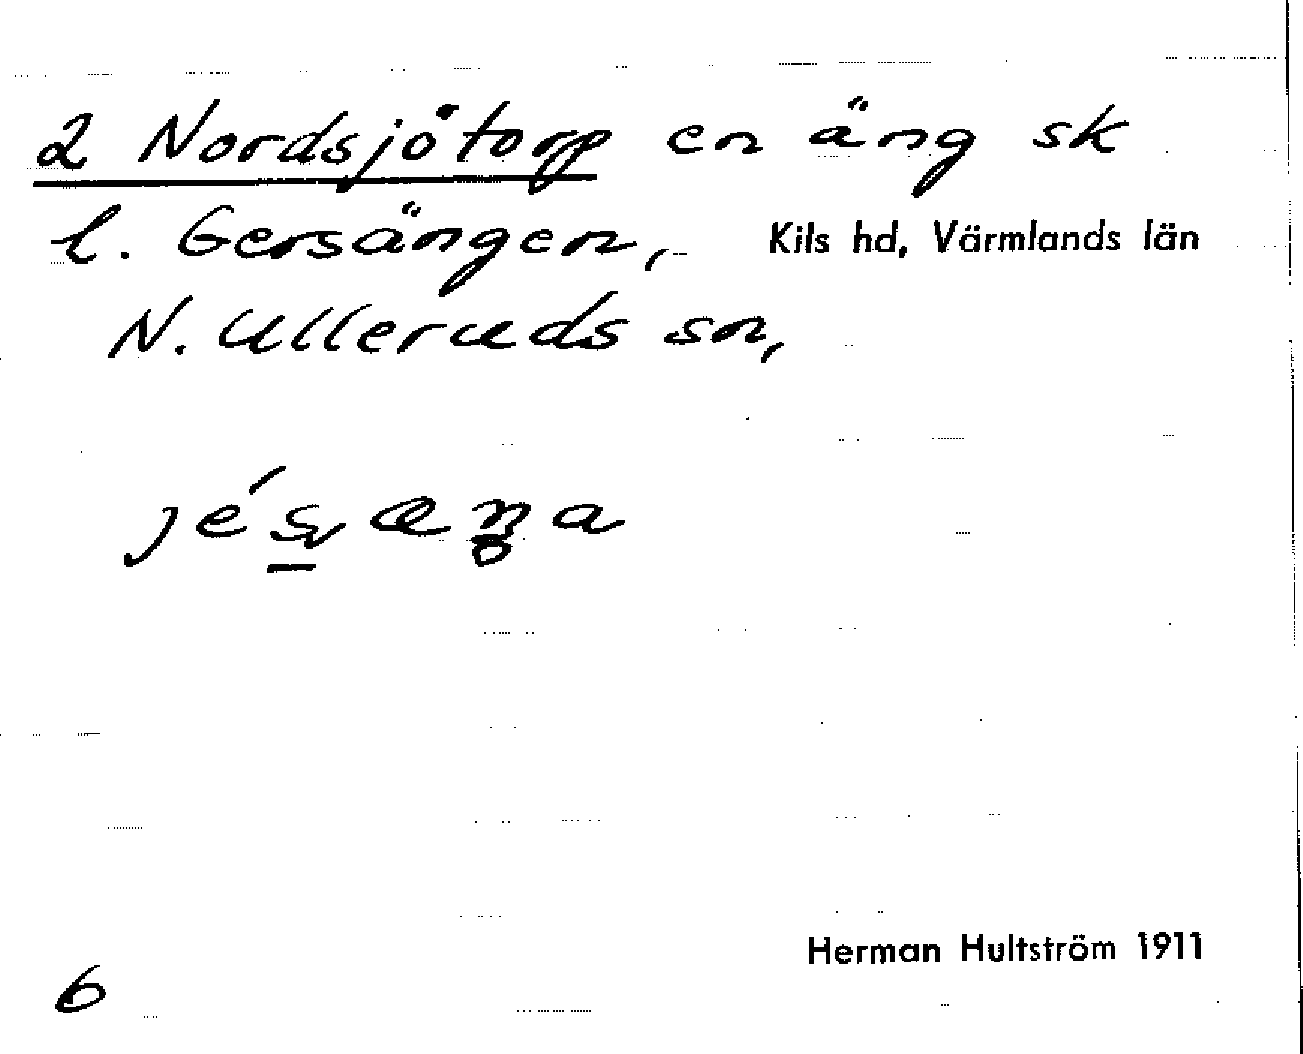 2 Nordsjötorp en äng sk
l. Gersängen, Kils hd, Värmlands län
N. Ulleruds sn,
Herman Hultström 1911
6